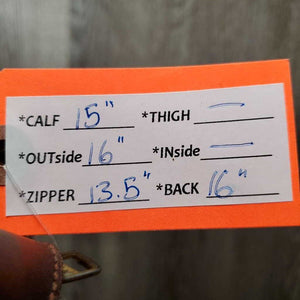 *CALF 15" *THIGH —
*OUTside 16" *INside —
*ZIPPER 13.5" *BACK 16"